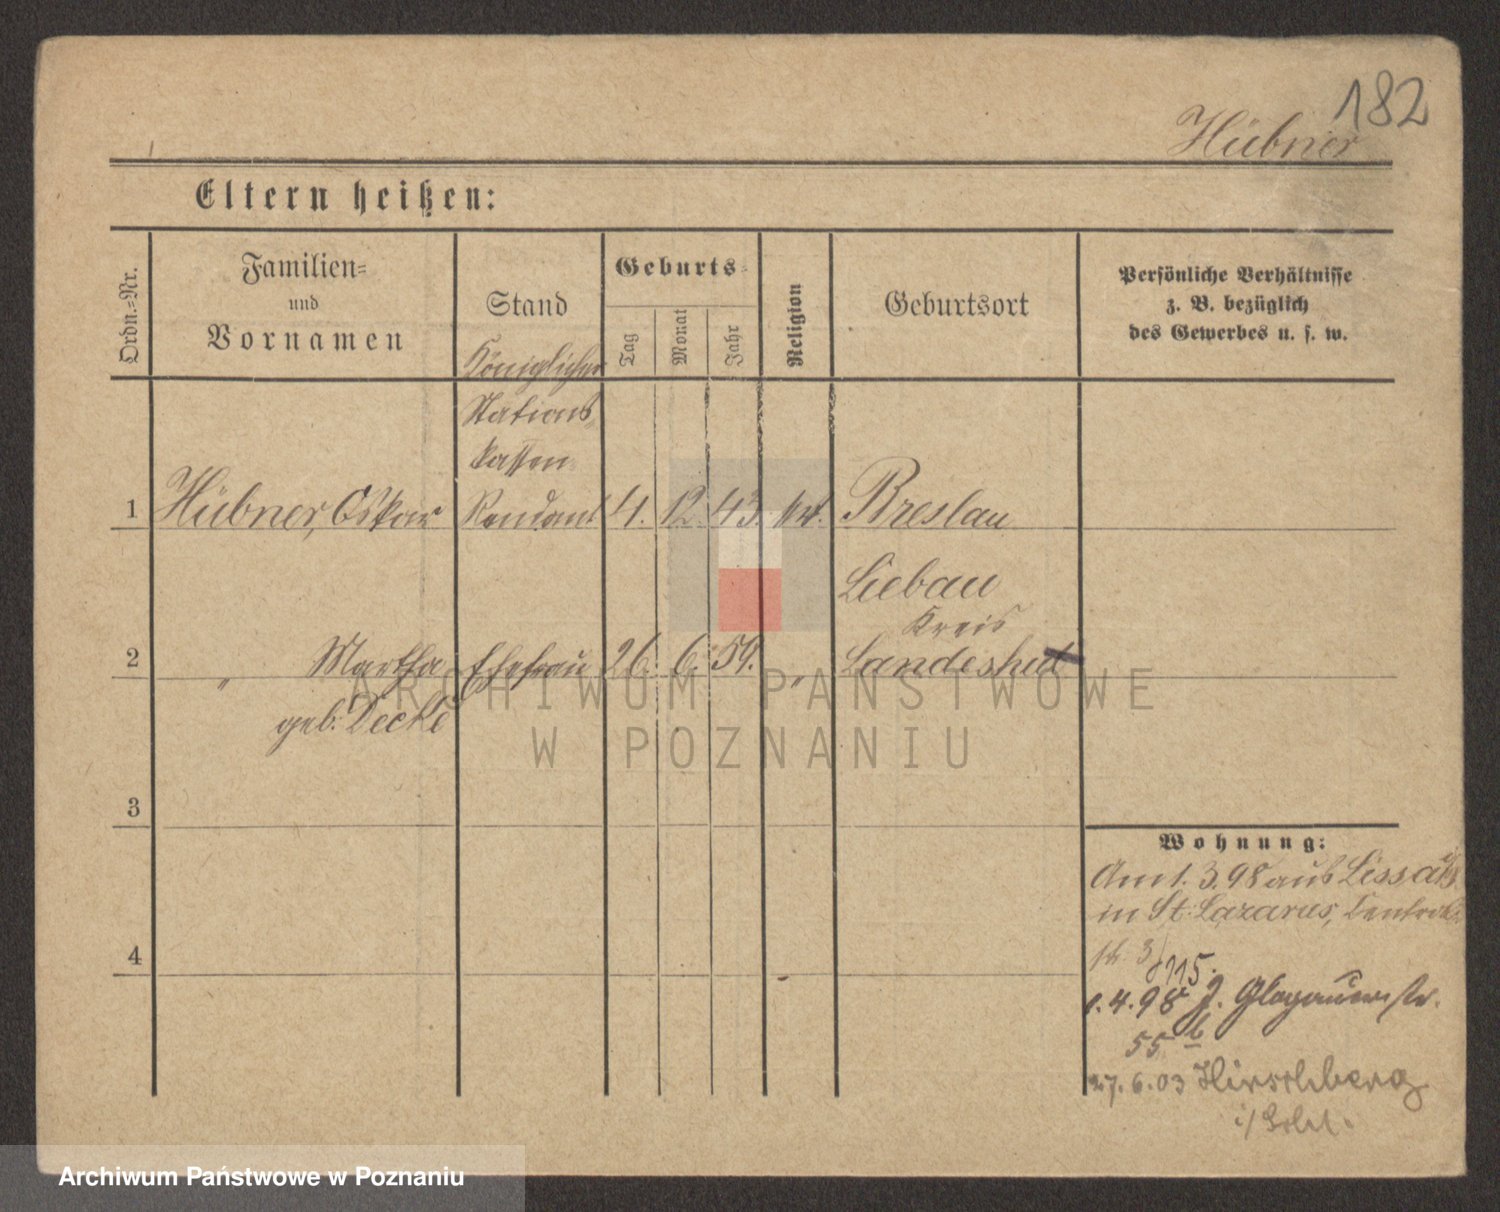 182
Hübner
Eltern heißen:
Ordn.-Nr.
Familien-
und
Vornamen
Stand
Geburts-
Tag
Monat
Jahr
Religion
Geburtsort
Persönliche Verhältnisse
z. B. bezüglich
des Gewerbes u. s. w.
Königlicher
Stations
kassen
1 Hübner, Oskar Rendant 4. 12. 43. Breslau
Liebau
Kreis
2 " Martha Ehefrau 26. 6. 59. " Landeshut
geb. Decke
3
Wohnung:
Am 1. 3. 98 aus Lissa
in St. Lazarus,
4
1. 4. 98 J. Glogauer str.
55 b
27. 6. 03 Hirschberg
ARCHIWUM PAŃSTWOWE
W POZNANIU
Archiwum Państwowe w Poznaniu